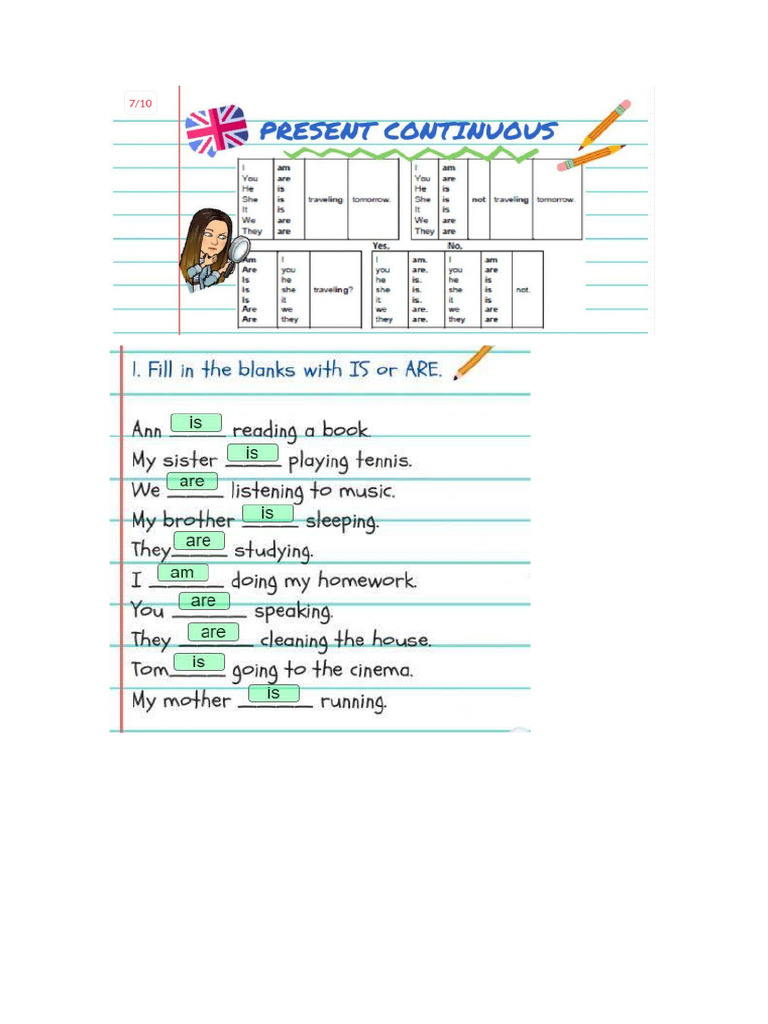 7/10
PRESENT CONTINUOUS
I am
You are
He is
She is traveling tomorrow.
It is
We are
They are
I am
You are
He is
She is not traveling tomorrow.
It is
We are
They are
Am I
Are you
Is he
Is she traveling?
Is it
Are we
Are they
Yes, No,
I am. I am
you are. you are
he is. he is
she is. she is not.
it is. it is
we are. we are
they are. they are
1. Fill in the blanks with IS or ARE.
Ann is reading a book.
My sister is playing tennis.
We are listening to music.
My brother is sleeping.
They are studying.
I am doing my homework.
You are speaking.
They are cleaning the house.
Tom is going to the cinema.
My mother is running.